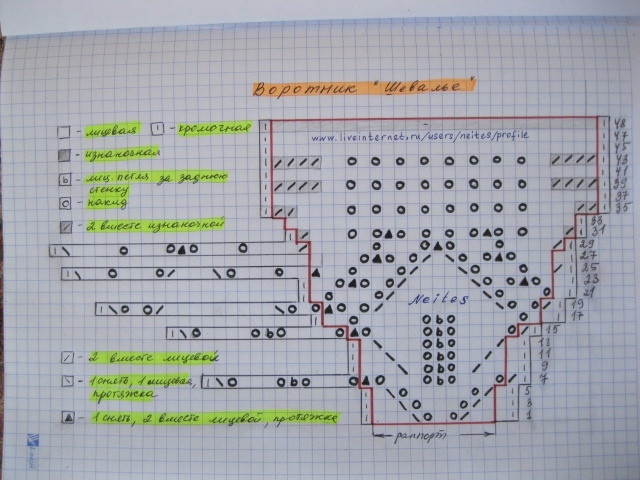 Воротник "Шевалье"
- лицевая - кромочная
- изнаночная
- лиц. петля за заднюю стенку
- накид
- 2 вместе изнаночной
- 2 вместе лицевой
- 1 снять, 1 лицевая,
протяжка
- 1 снять, 2 вместе лицевой, протяжка
www.liveinternet.ru/users/neites/profile
Neites
раппорт
48
47
45
43
41
39
37
35
33
31
29
27
25
23
21
19
17
15
13
11
9
7
5
3
1